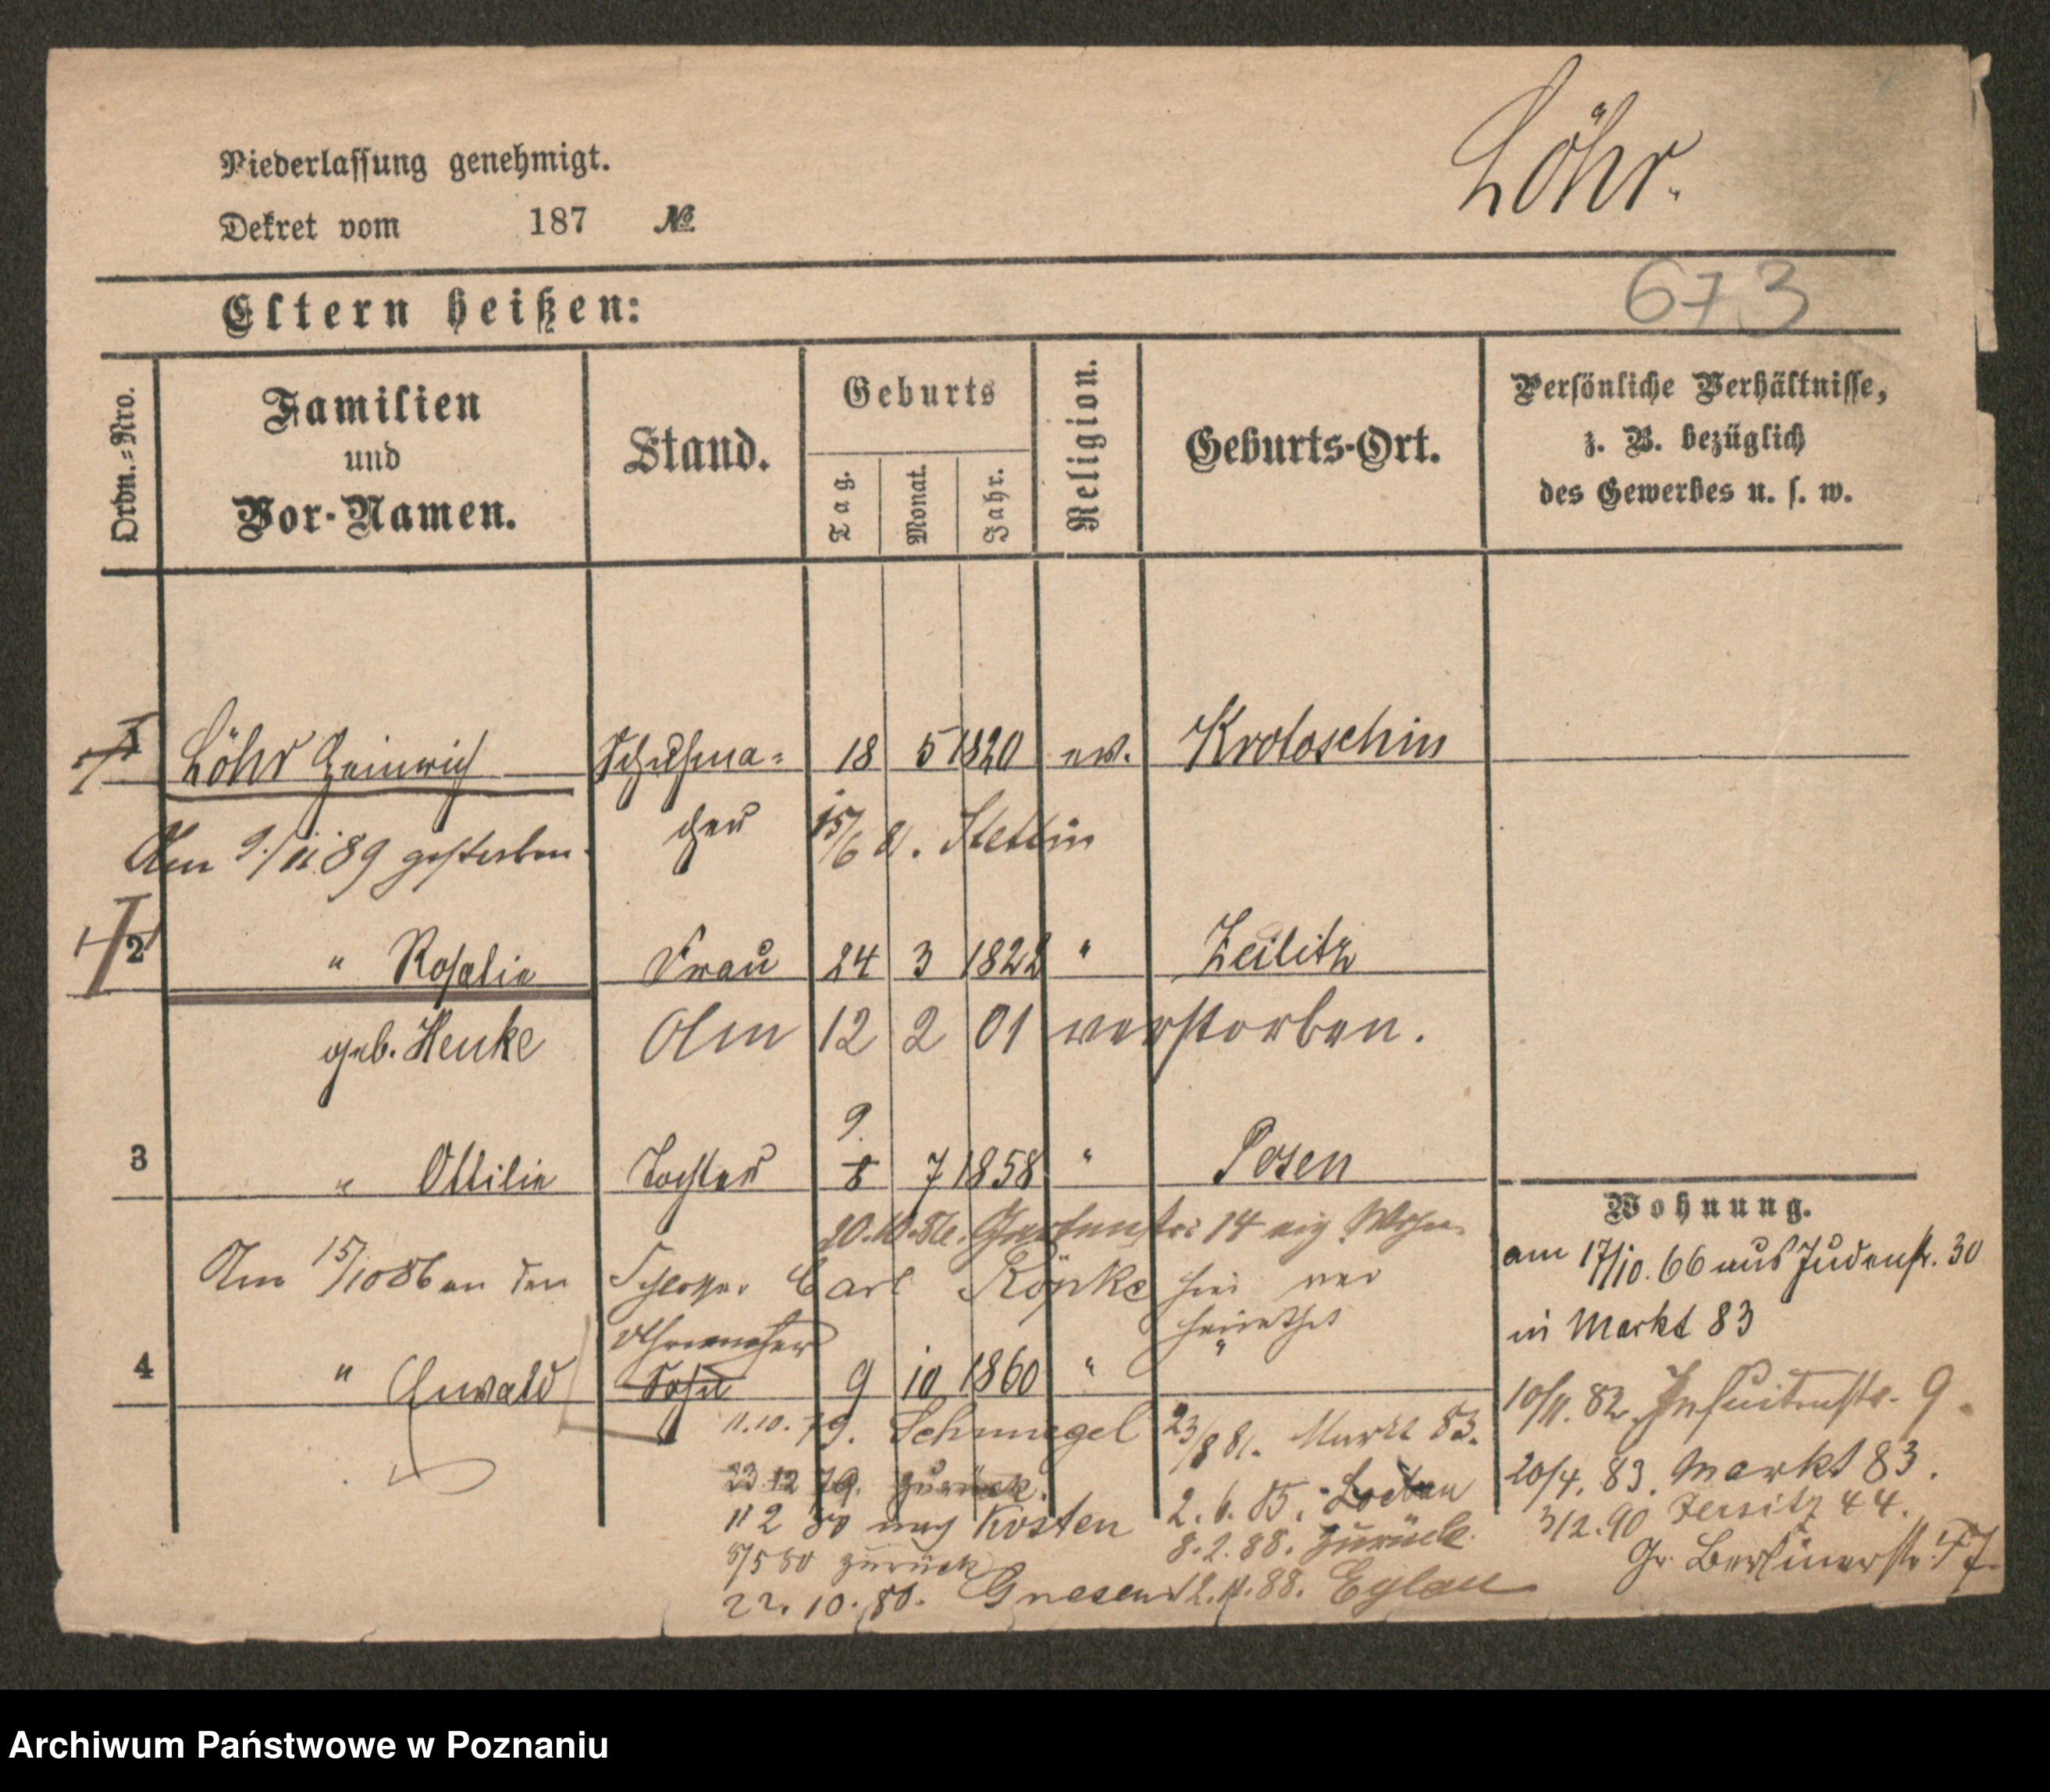 Löhr.
Niederlassung genehmigt.
Dekret vom 187 №
673
Eltern heißen:
Ordn.-Nro.
Familien und Vor-Namen.
Stand.
Geburts
Tag.
Monat.
Jahr.
Religion.
Geburts-Ort.
Persönliche Verhältnisse,
z. B. bezüglich
des Gewerbes u. s. w.
1 Löhr Heinrich Schuhma- 18 5 1820 ev. Krotoschin
cher 15/6 81. Stettin
Am 9/11 89 gestorben.
2 " Rosalie Frau 24 3 1822 " Zeilitz
geb. Henke Am 12 2 01 verstorben.
9.
3 " Ottilie Tochter 8 7 1858 " Posen
20.10.86. Gartenstr: 14 eig. Wohn.
Am 15/10 86 an den Schlosser Carl Köpke hier ver
heirathet
Uhrmacher
4 " Ewald Sohn 9 10 1860 " "
11.10.79. Schmiegel
23 12 79. zurück.
11 2 80 nach Kosten
5 80 zurück
22.10.80. Gnesen
23/8 81. Markt 83.
2.6.85.
8.2.88. zurück.
88. Eylau
Wohnung.
am 17/10.66 aus Judenstr. 30
in Markt 83
10/11.82. Jesuitenstr. 9.
20/4.83. Markt 83.
3/2.90 Jersitz 44.
Gr. Berlinerstr. 47.
Archiwum Państwowe w Poznaniu